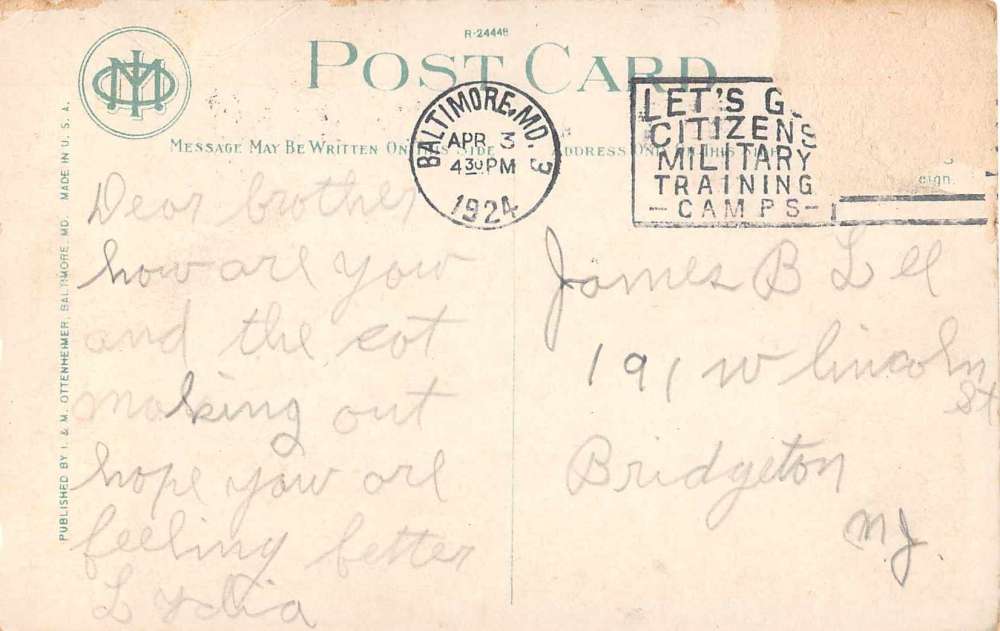 R-24448
POST CARD
MESSAGE MAY BE WRITTEN ON THIS SIDE
ADDRESS ONLY ON THIS
BALTIMORE, MD. 3
APR 3
4 30 PM
1924
LET'S G
CITIZENS
MILITARY
TRAINING
- CAMPS -
eign.
PUBLISHED BY I. & M. OTTENHEIMER, BALTIMORE, MD. MADE IN U. S. A.
Dear brother
how are you
and the cat
making out
hope you are
feeling better
Lydia
James B Lee
191 W lincoln
St
Bridgeton
N.J.